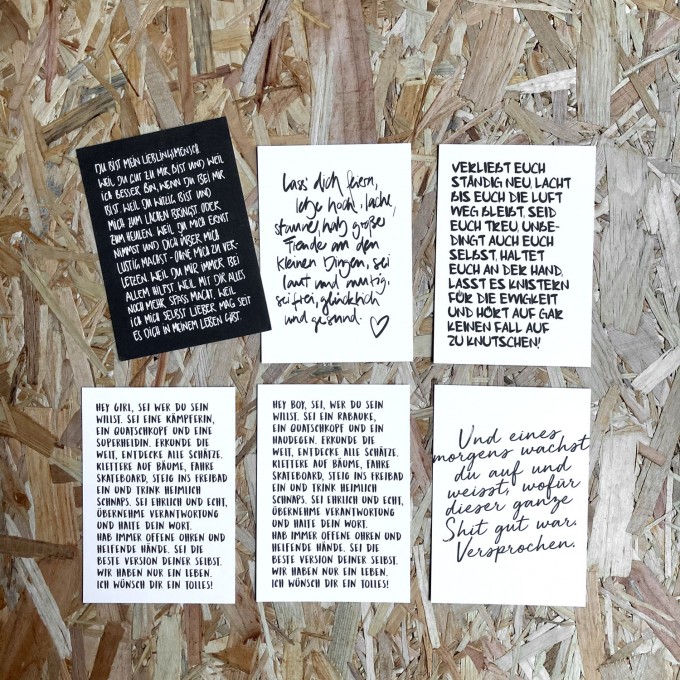 DU BIST MEIN LIEBLINGSMENSCH.
WEIL DU GUT ZU MIR BIST UND WEIL
ICH BESSER BIN, WENN DU BEI MIR
BIST. WEIL DU WILD BIST UND
MICH ZUM LACHEN BRINGST. ODER
ZUM HEULEN. WEIL DU MICH ERNST
NIMMST UND DICH ÜBER MICH
LUSTIG MACHST - OHNE MICH ZU VER-
LETZEN. WEIL DU MIR IMMER BEI
ALLEM HILFST. WEIL MIT DIR ALLES
NOCH MEHR SPASS MACHT. WEIL
ICH MICH SELBST LIEBER MAG SEIT
ES DICH IN MEINEM LEBEN GIBT.
Lass' dich feiern,
lebe hoch, lache,
staune, hab große
Freude an den
kleinen Dingen, sei
laut und mutig,
sei frei, glücklich
und gesund.
VERLIEBT EUCH
STÄNDIG NEU, LACHT
BIS EUCH DIE LUFT
WEG BLEIBT, SEID
EUCH TREU, UNBE-
DINGT AUCH EUCH
SELBST, HALTET
EUCH AN DER HAND,
LASST ES KNISTERN
FÜR DIE EWIGKEIT
UND HÖRT AUF GAR
KEINEN FALL AUF
ZU KNUTSCHEN!
HEY GIRL, SEI WER DU SEIN
WILLST. SEI EINE KÄMPFERIN,
EIN QUATSCHKOPF UND EINE
SUPERHELDIN. ERKUNDE DIE
WELT, ENTDECKE ALLE SCHÄTZE.
KLETTERE AUF BÄUME, FAHRE
SKATEBOARD, STEIG INS FREIBAD
EIN UND TRINK HEIMLICH
SCHNAPS. SEI EHRLICH UND ECHT,
ÜBERNEHME VERANTWORTUNG
UND HALTE DEIN WORT.
HAB IMMER OFFENE OHREN UND
HELFENDE HÄNDE. SEI DIE
BESTE VERSION DEINER SELBST.
WIR HABEN NUR EIN LEBEN.
ICH WÜNSCH DIR EIN TOLLES!
HEY BOY, SEI, WER DU SEIN
WILLST. SEI EIN RABAUKE,
EIN QUATSCHKOPF UND EIN
HAUDEGEN. ERKUNDE DIE
WELT, ENTDECKE ALLE SCHÄTZE.
KLETTERE AUF BÄUME, FAHRE
SKATEBOARD, STEIG INS FREIBAD
EIN UND TRINK HEIMLICH
SCHNAPS. SEI EHRLICH UND ECHT,
ÜBERNEHME VERANTWORTUNG
UND HALTE DEIN WORT.
HAB IMMER OFFENE OHREN UND
HELFENDE HÄNDE. SEI DIE
BESTE VERSION DEINER SELBST.
WIR HABEN NUR EIN LEBEN.
ICH WÜNSCH DIR EIN TOLLES!
Und eines
morgens wachst
du auf und
weisst, wofür
dieser ganze
Shit gut war.
Versprochen.